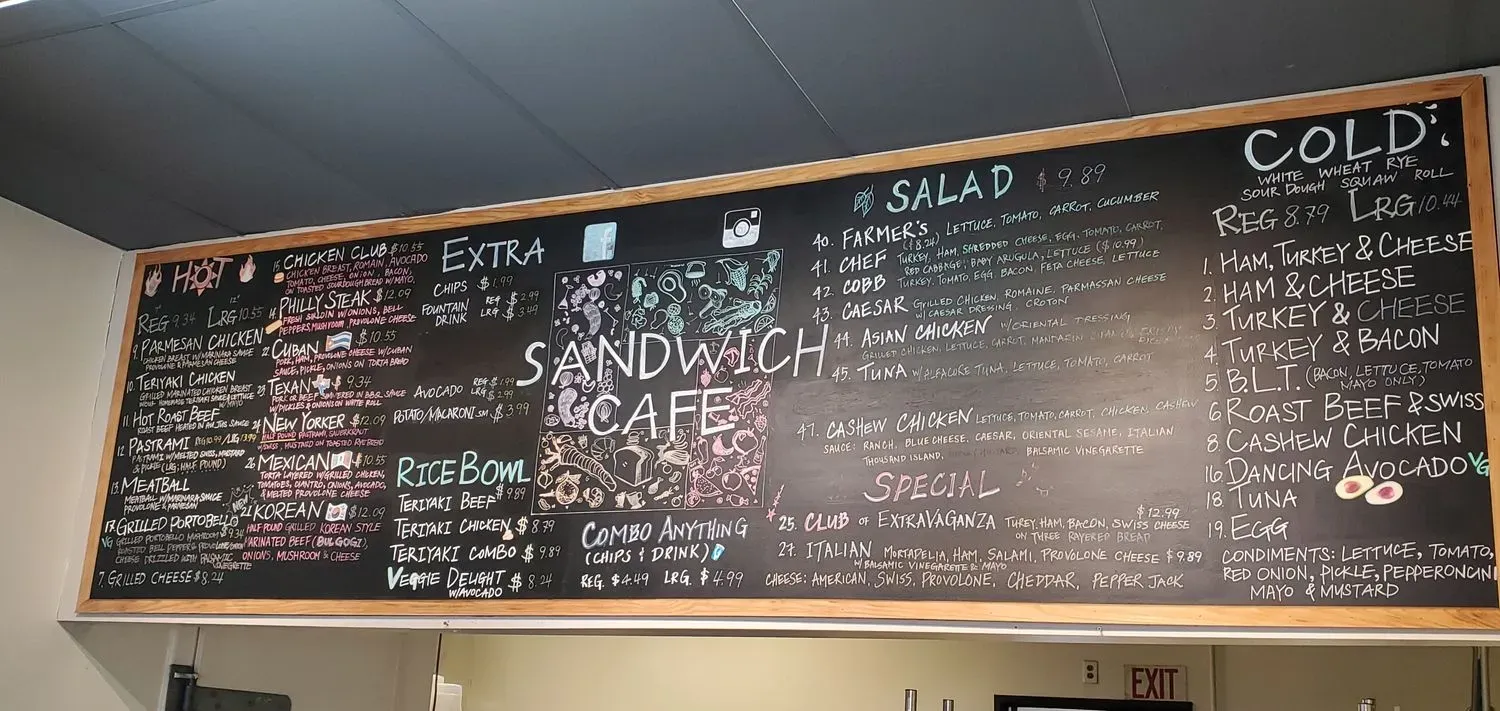 HOT
REG 9.34 LRG 10.55
9. PARMESAN CHICKEN
CHICKEN BREAST W/MARINARA SAUCE
PROVOLONE & PARMESAN CHEESE
10. TERIYAKI CHICKEN
GRILLED MARINATED CHICKEN BREAST,
W/MAYO
11. HOT ROAST BEEF
ROAST BEEF HEATED IN AU JUS SAUCE
12. PASTRAMI REG 10.99 / LRG 13.99
PASTRAMI W/MELTED SWISS, MUSTARD
& PICKLE (LRG; HALF POUND)
13. MEATBALL
MEATBALL W/MARINARA SAUCE
PROVOLONE & PARMESAN
17. GRILLED PORTOBELLO
VG GRILLED PORTOBELLO MUSHROOM $9.34
ROASTED BELL PEPPER & PROVOLONE
CHEESE DRIZZLED WITH BALSAMIC
VINEGRETTE
7. GRILLED CHEESE $8.24
NEW
15. CHICKEN CLUB $10.55
CHICKEN BREAST, ROMAIN, AVOCADO
TOMATO, CHEESE, ONION, BACON,
ON TOASTED SOURDOUGH BREAD W/MAYO
14. PHILLY STEAK $12.09
FRESH SIRLOIN W/ONIONS, BELL
PEPPERS, MUSHROOM, PROVOLONE CHEESE
22. CUBAN $10.55
PORK, HAM, PROVOLONE CHEESE W/CUBAN
SAUCE, PICKLE, ONIONS ON TORTA BREAD
23. TEXAN $9.34
PORK OR BEEF COVERED IN B.B.Q. SAUCE
W/PICKLES & ONIONS ON WHITE ROLL
24. NEW YORKER $12.09
HALF POUND PASTRAMI, SAUERKRAUT
SWISS, MUSTARD ON TOASTED RYE BREAD
26. MEXICAN $10.55
TORTA LAYERED W/GRILLED CHICKEN,
TOMATOES, CILANTRO, ONIONS, AVOCADO,
& MELTED PROVOLONE CHEESE
KOREAN $12.09
HALF POUND GRILLED KOREAN STYLE
MARINATED BEEF (BULGOGI),
ONIONS, MUSHROOM & CHEESE
EXTRA
CHIPS $1.99
FOUNTAIN DRINK REG $2.99
LRG $3.49
AVOCADO REG $1.99
LRG $2.99
POTATO/MACARONI SM $3.99
RICE BOWL
TERIYAKI BEEF $9.89
TERIYAKI CHICKEN $8.79
TERIYAKI COMBO $9.89
VEGGIE DELIGHT $8.24
W/AVOCADO
SANDWICH
CAFE
COMBO ANYTHING
(CHIPS & DRINK)
REG. $4.49 LRG. $4.99
SALAD $9.89
40. FARMER'S ($8.24) LETTUCE, TOMATO, CARROT, CUCUMBER
41. CHEF TURKEY, HAM, SHREDDED CHEESE, EGG, TOMATO, CARROT,
RED CABBAGE, BABY ARUGULA, LETTUCE ($10.99)
42. COBB TURKEY, TOMATO, EGG, BACON, FETA CHEESE, LETTUCE
43. CAESAR GRILLED CHICKEN, ROMAINE, PARMASSAN CHEESE
W/CAESAR DRESSING, CROTON
44. ASIAN CHICKEN W/ORIENTAL TRESSING
GRILLED CHICKEN, LETTUCE, CARROT, MANDARIN
45. TUNA W/ALFACORE TUNA, LETTUCE, TOMATO, CARROT
47. CASHEW CHICKEN LETTUCE, TOMATO, CARROT, CHICKEN, CASHEW
SAUCE: RANCH, BLUE CHEESE, CAESAR, ORIENTAL SESAME, ITALIAN
THOUSAND ISLAND, BALSAMIC VINEGARETTE
SPECIAL
25. CLUB OF EXTRAVAGANZA TUREY, HAM, BACON, SWISS CHEESE $12.99
ON THREE RAYERED BREAD
27. ITALIAN MORTADELIA, HAM, SALAMI, PROVOLONE CHEESE $9.89
W/BALSAMIC VINEGARETTE & MAYO
CHEESE: AMERICAN, SWISS, PROVOLONE, CHEDDAR, PEPPER JACK
COLD
WHITE WHEAT RYE
SOUR DOUGH SQUAW ROLL
REG 8.79 LRG 10.44
1. HAM, TURKEY & CHEESE
2. HAM & CHEESE
3. TURKEY & CHEESE
4. TURKEY & BACON
5. B.L.T. (BACON, LETTUCE, TOMATO
MAYO ONLY)
6 ROAST BEEF & SWISS
8. CASHEW CHICKEN
16. DANCING AVOCADO VG
18. TUNA
19. EGG
CONDIMENTS: LETTUCE, TOMATO,
RED ONION, PICKLE, PEPPERONCINI
MAYO & MUSTARD
EXIT